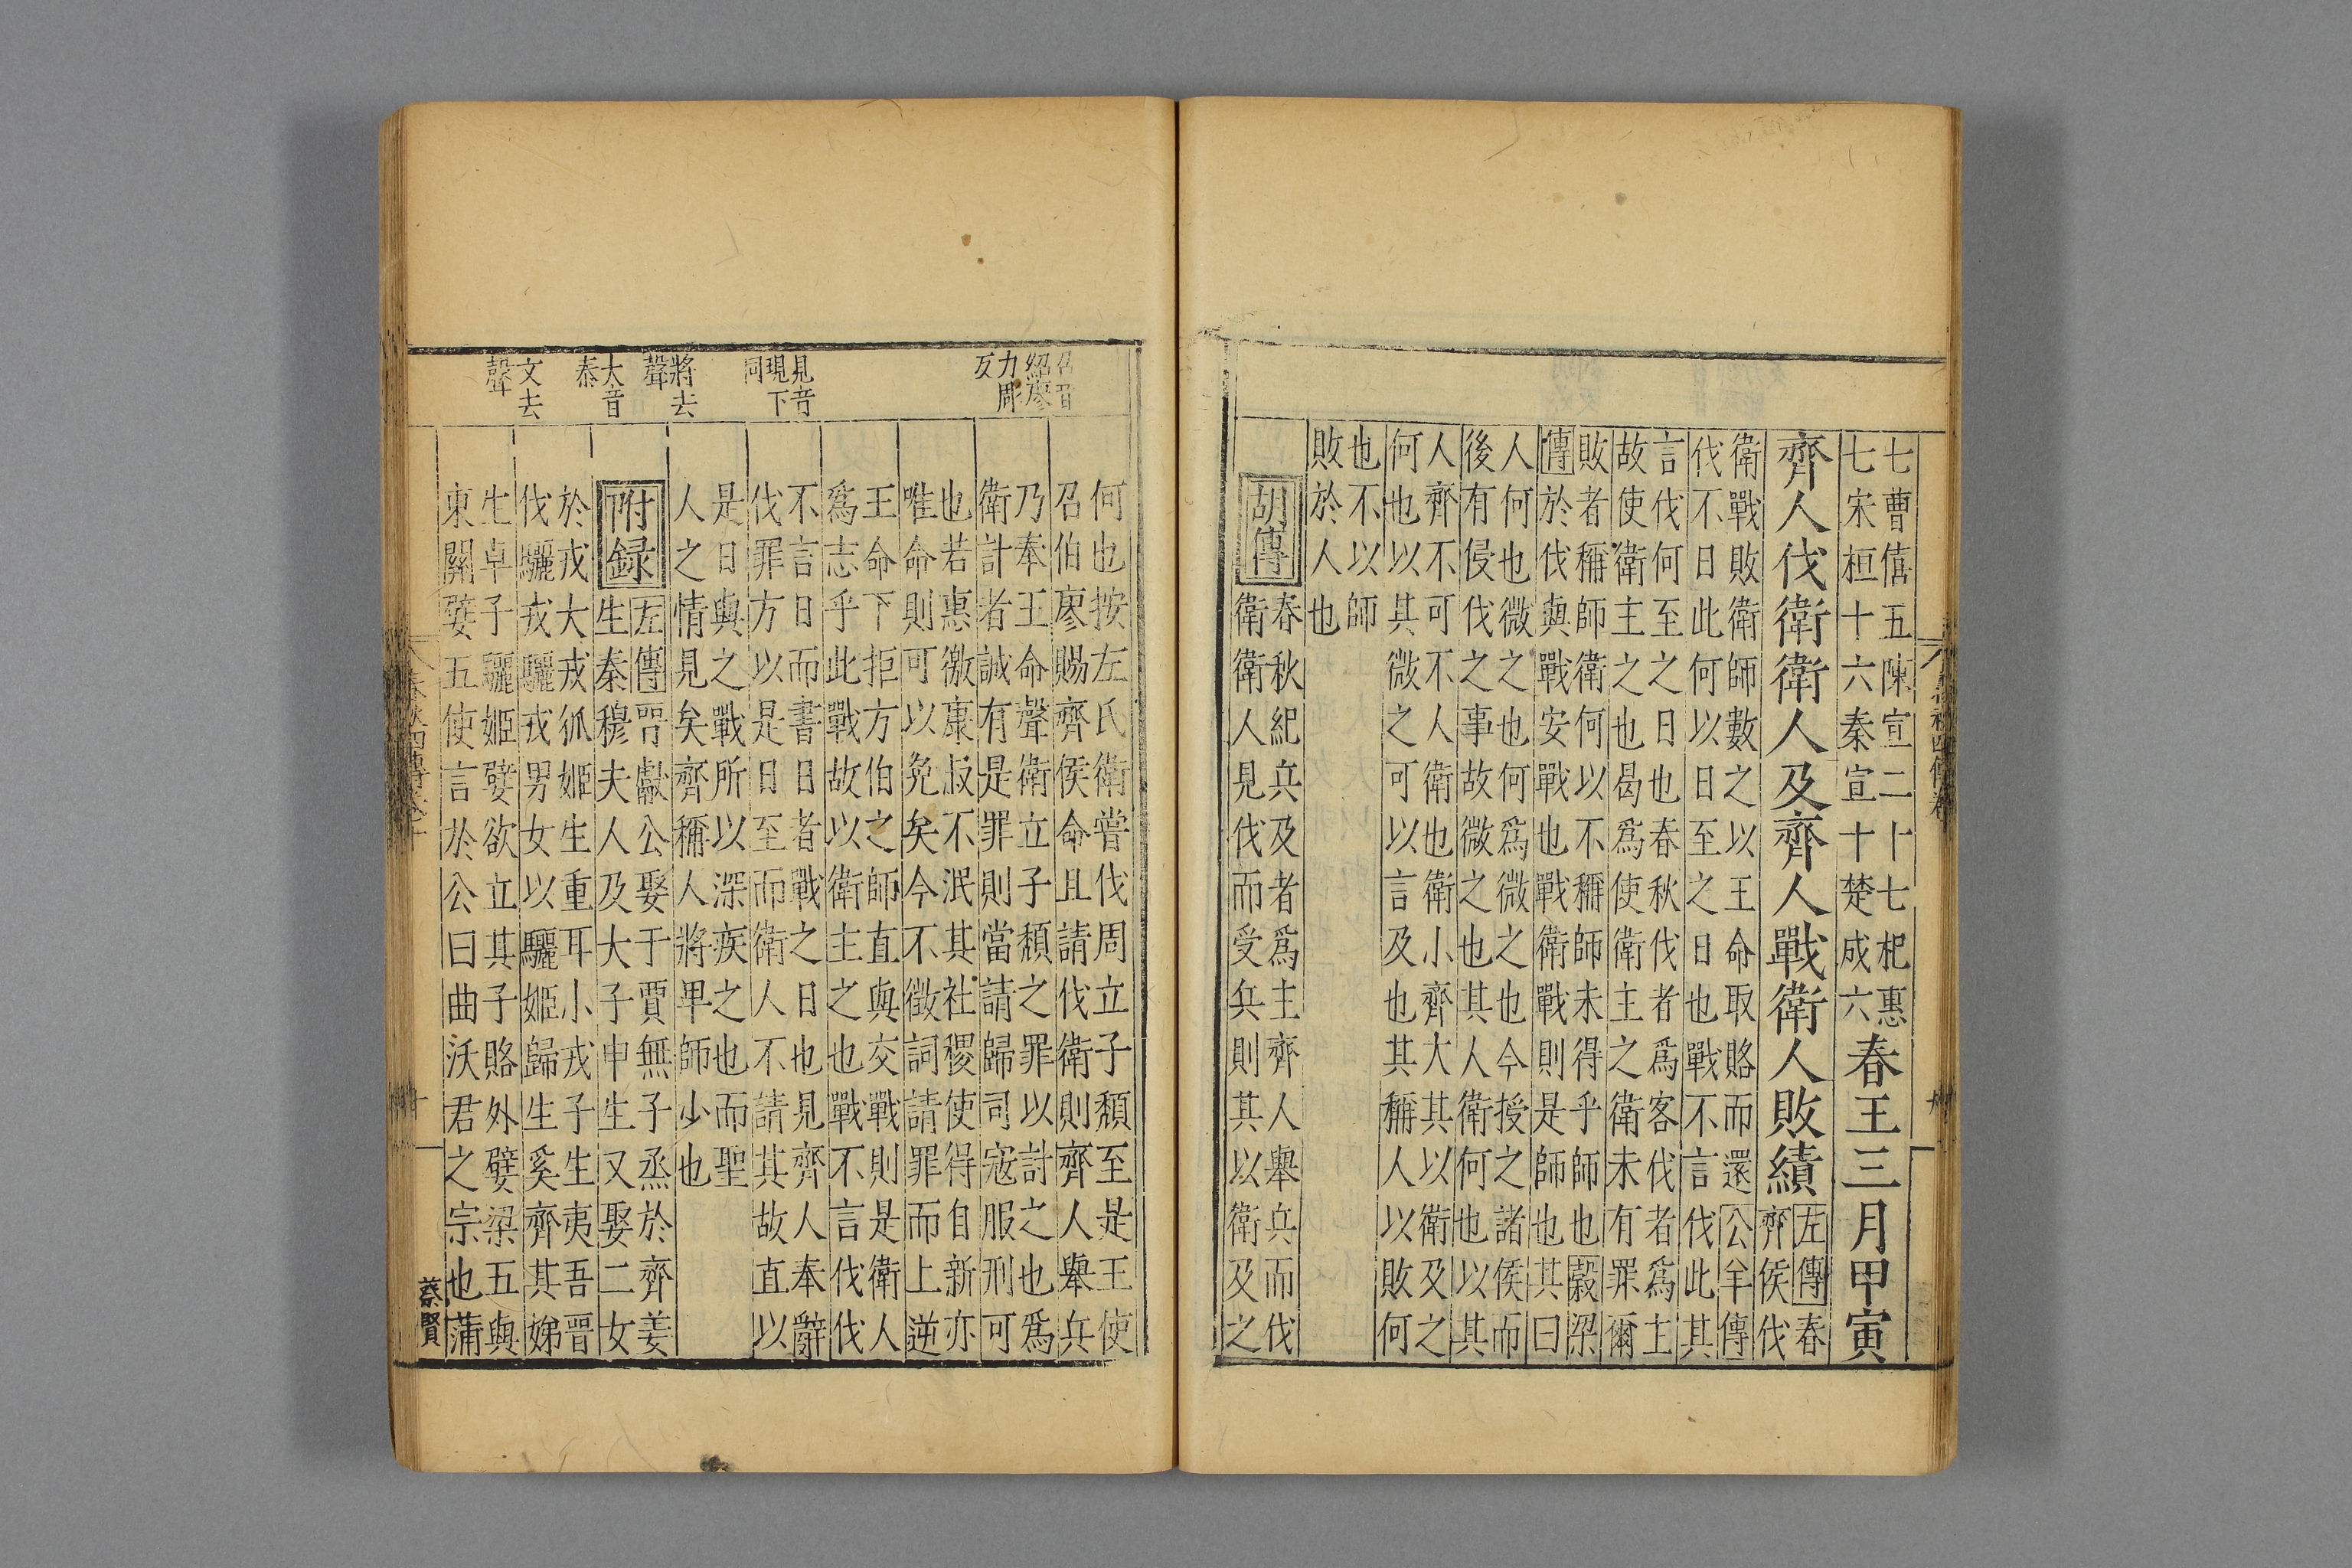 七曹僖五陳宣二十七杞惠
七宋桓十六秦宣十楚成六
春王三月甲寅
齊人伐衛衛人及齊人戰衛人敗績
左傳春
齊侯伐
衛戰敗衛師數之以王命取賂而還公羊傳
伐不日此何以日至之日也戰不言伐此其
言伐何至之日也春秋伐者爲客伐者爲主
故使衛主之也曷爲使衛主之衛未有罪爾
敗者稱師衛何以不稱師未得乎師也穀梁
傳於伐與戰安戰也戰衛戰則是師也其曰
人何也微之也何爲微之也今授之諸侯而
後有侵伐之事故微之也其人衛何也以其
人齊不可不人衛也衛小齊大其以衛及之
何也以其微之可以言及也其稱人以敗何
也不以師
敗於人也
胡傳
春秋紀兵及者爲主齊人舉兵而伐
衛衛人見伐而受兵則其以衛及之
何也按左氏衛嘗伐周立子頹至是王使
召伯廖賜齊侯命且請伐衛則齊人舉兵
乃奉王命聲衛立子頹之罪以討之也爲
衛計者誠有是罪則當請歸司寇服刑可
也若惠徼康叔不泯其社稷使得自新亦
唯命則可以免矣今不徵詞請罪而上逆
王命下拒方伯之師直與交戰則是衛人
爲志乎此戰故以衛主之也戰不言伐伐
不言日而書日者戰之日也見齊人奉辭
伐罪方以是日至而衛人不請其故直以
是日與之戰所以深疾之也而聖
人之情見矣齊稱人將卑師少也
附録
左傳晉獻公娶于賈無子烝於齊姜
生秦穆夫人及大子申生又娶二女
於戎大戎狐姬生重耳小戎子生夷吾晉
伐驪戎驪戎男女以驪姬歸生奚齊其娣
生卓子驪姬嬖欲立其子賂外嬖梁五與
東關嬖五使言於公曰曲沃君之宗也蒲
紹廖
力周
反
見音
現下
同
將去
聲
大音
泰
文去
聲
蔡賢